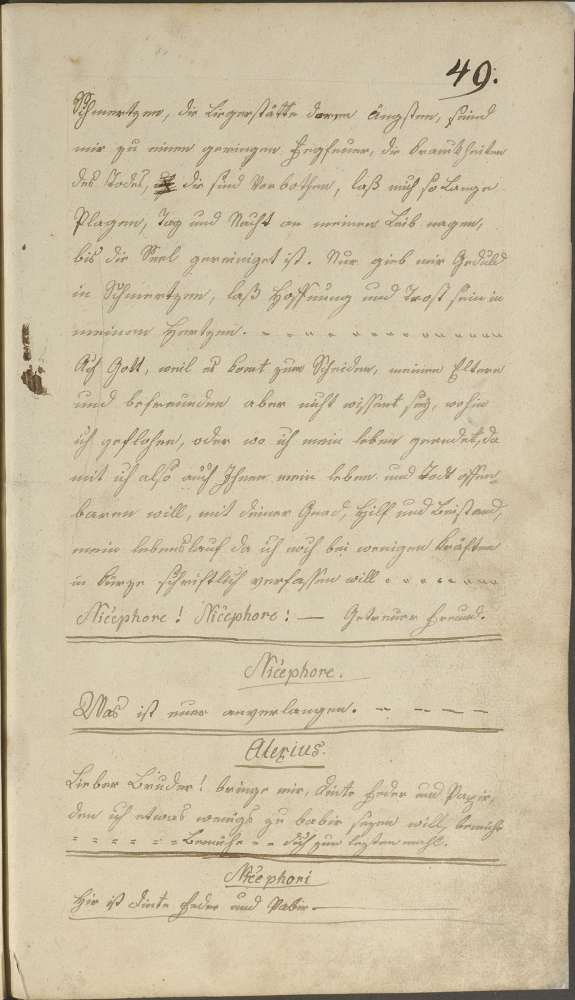 49.
Schmertzen, die Liegerstätte deren Ängsten, seind
mir zu einen geringen Fegfeuer, die Krankheiten
des Todes, die sind Verbothen, laß mich so Lange
Plagen, Tag und Nacht an meinen Leib nagen,
bis die Seel gereiniget ist. Nur gieb mir Geduld
in Schmertzen, laß Hoffnung und Trost sein in
meinem Hertzen.
Ach Gott, weil es komt zum Scheiden, meinen Eltern
und befreunden aber nicht wissent sey, wohin
ich geflohen, oder wo ich mein leben geendet, da
mit ich also auch Ihnen mein leben und Todt offen
baren will, mit deiner Gnad, Hilf und Beistand,
mein lebenslauf da ich noch bei wenigen kräften
in kürze schriftlich verfassen will
Nicephore! Nicephore: — Getreuer Freund.
Nicephore.
Was ist euer anverlangen.
Alexius.
Lieber Bruder! bringe mir, dinte feder und Papir,
den ich etwas wenigs zu babir sezen will, bemühe
= = = = = = Bemühe = = dich zum lezten mahl.
Nicephori
Hir ist dinte feder und Pabir.